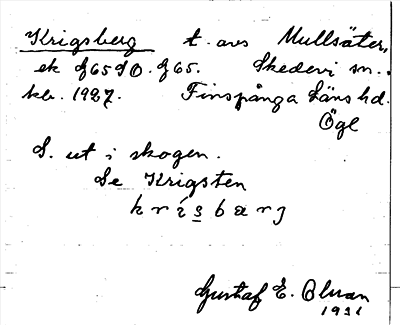 Krigsberg t. avs Mullsäter,
ek f65SO. f65. Skedevi sn.
kb. 1927. Finspånga Läns hd.
Ögl
S. ut i skogen.
Se Krigsten
krísbarj
Gustaf E. Olsson
1931